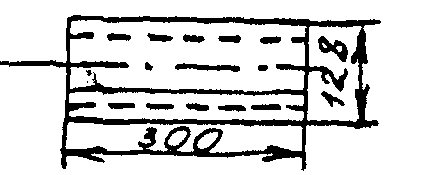 128
300